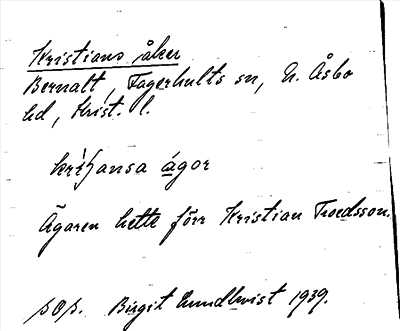 Kristians åker
Bernalt, Fagerhults sn, N. Åsbo
hd, Krist. l.
ägor
Ägaren hette förr Kristian Troedsson.
Birgit Lundkvist 1939.